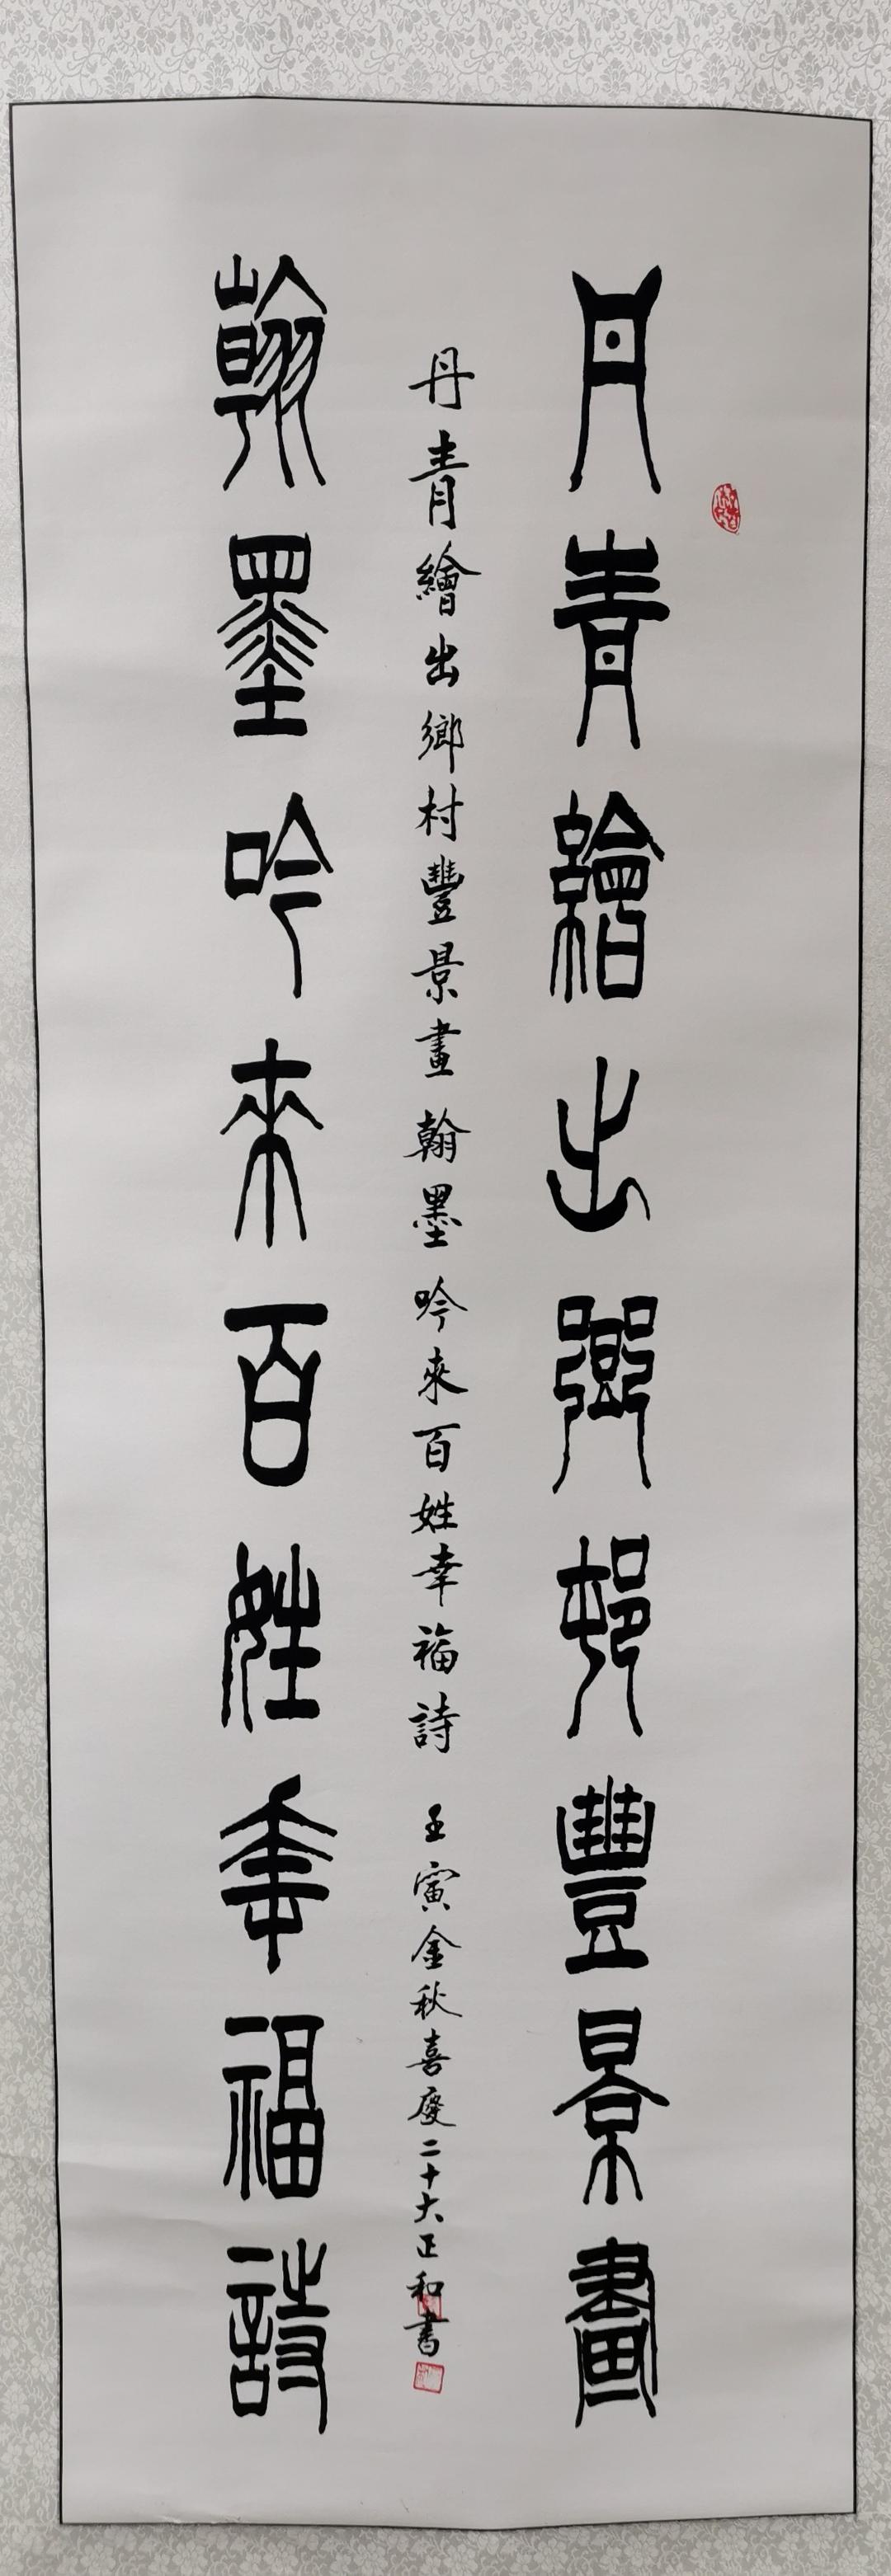 丹青繪出鄉邨豐景畫
丹青繪出鄉村豐景畫翰墨吟來百姓幸福詩 壬寅金秋喜慶二十大正和書
翰墨吟來百姓幸福詩